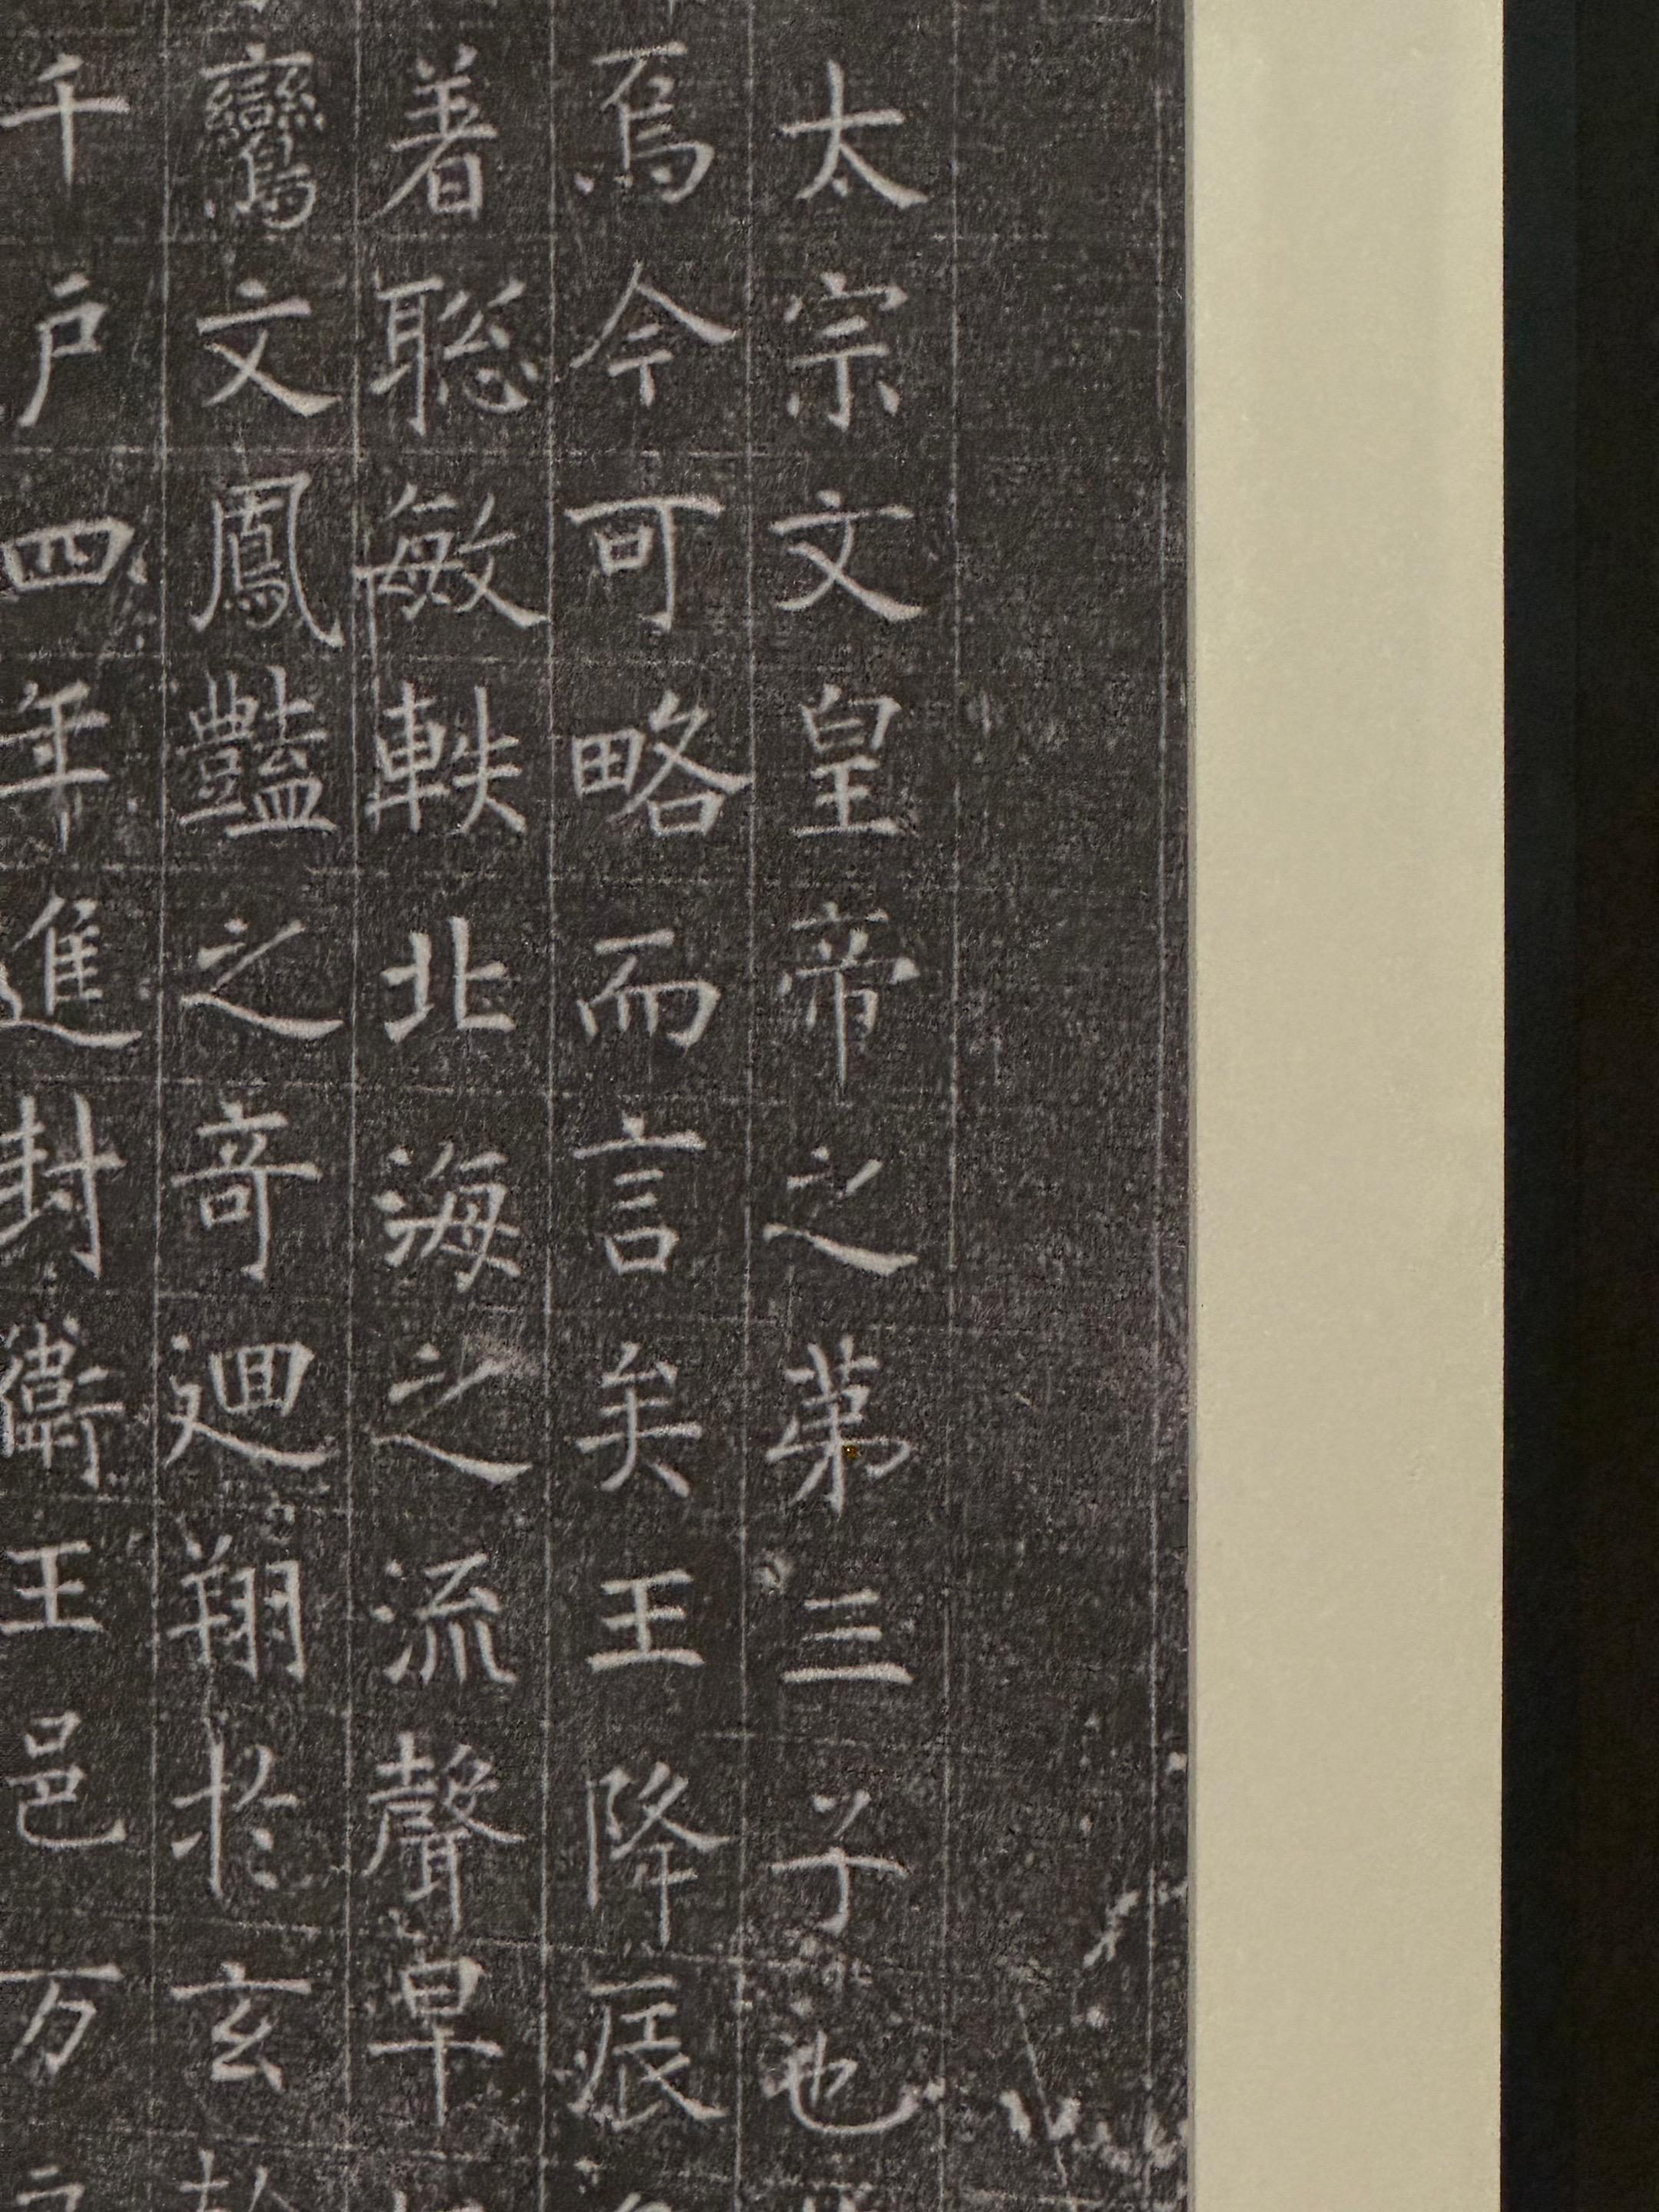 太宗文皇帝之苐三子也
焉今可略而言矣王降宸
著聡敏軼北海之流聲早
鸞文鳳豔之竒迴翔扵玄
千戶四年進封衞王邑万